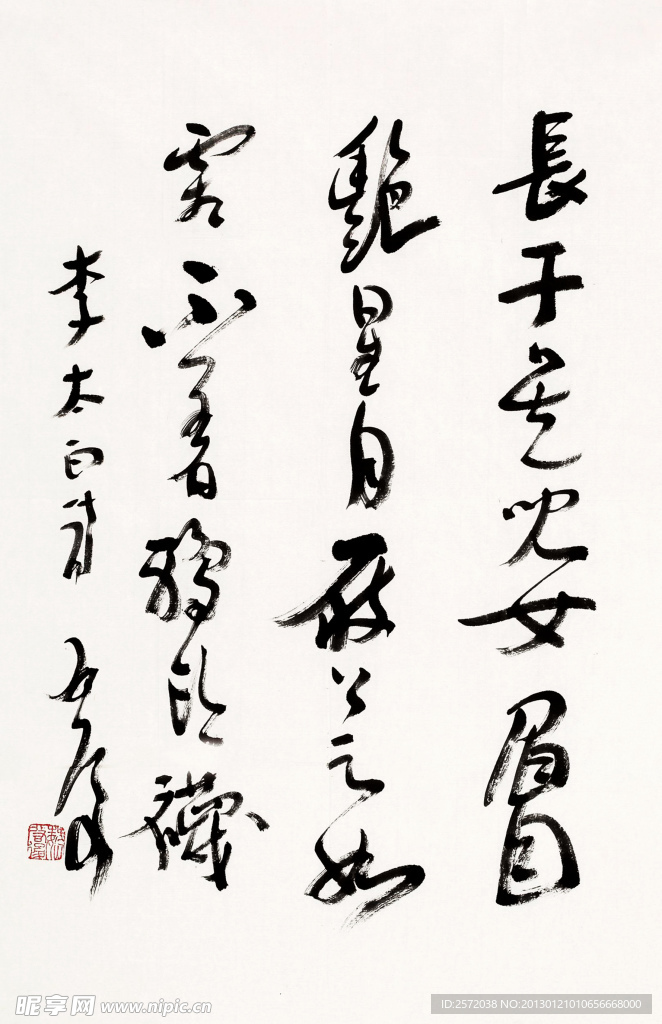 長干吳兒女眉目
艷星月屐上足如
霜不著鴉頭襪
李太白詩
昵享网 www.nipic.cn
ID:2572038 NO:20130121010656668000